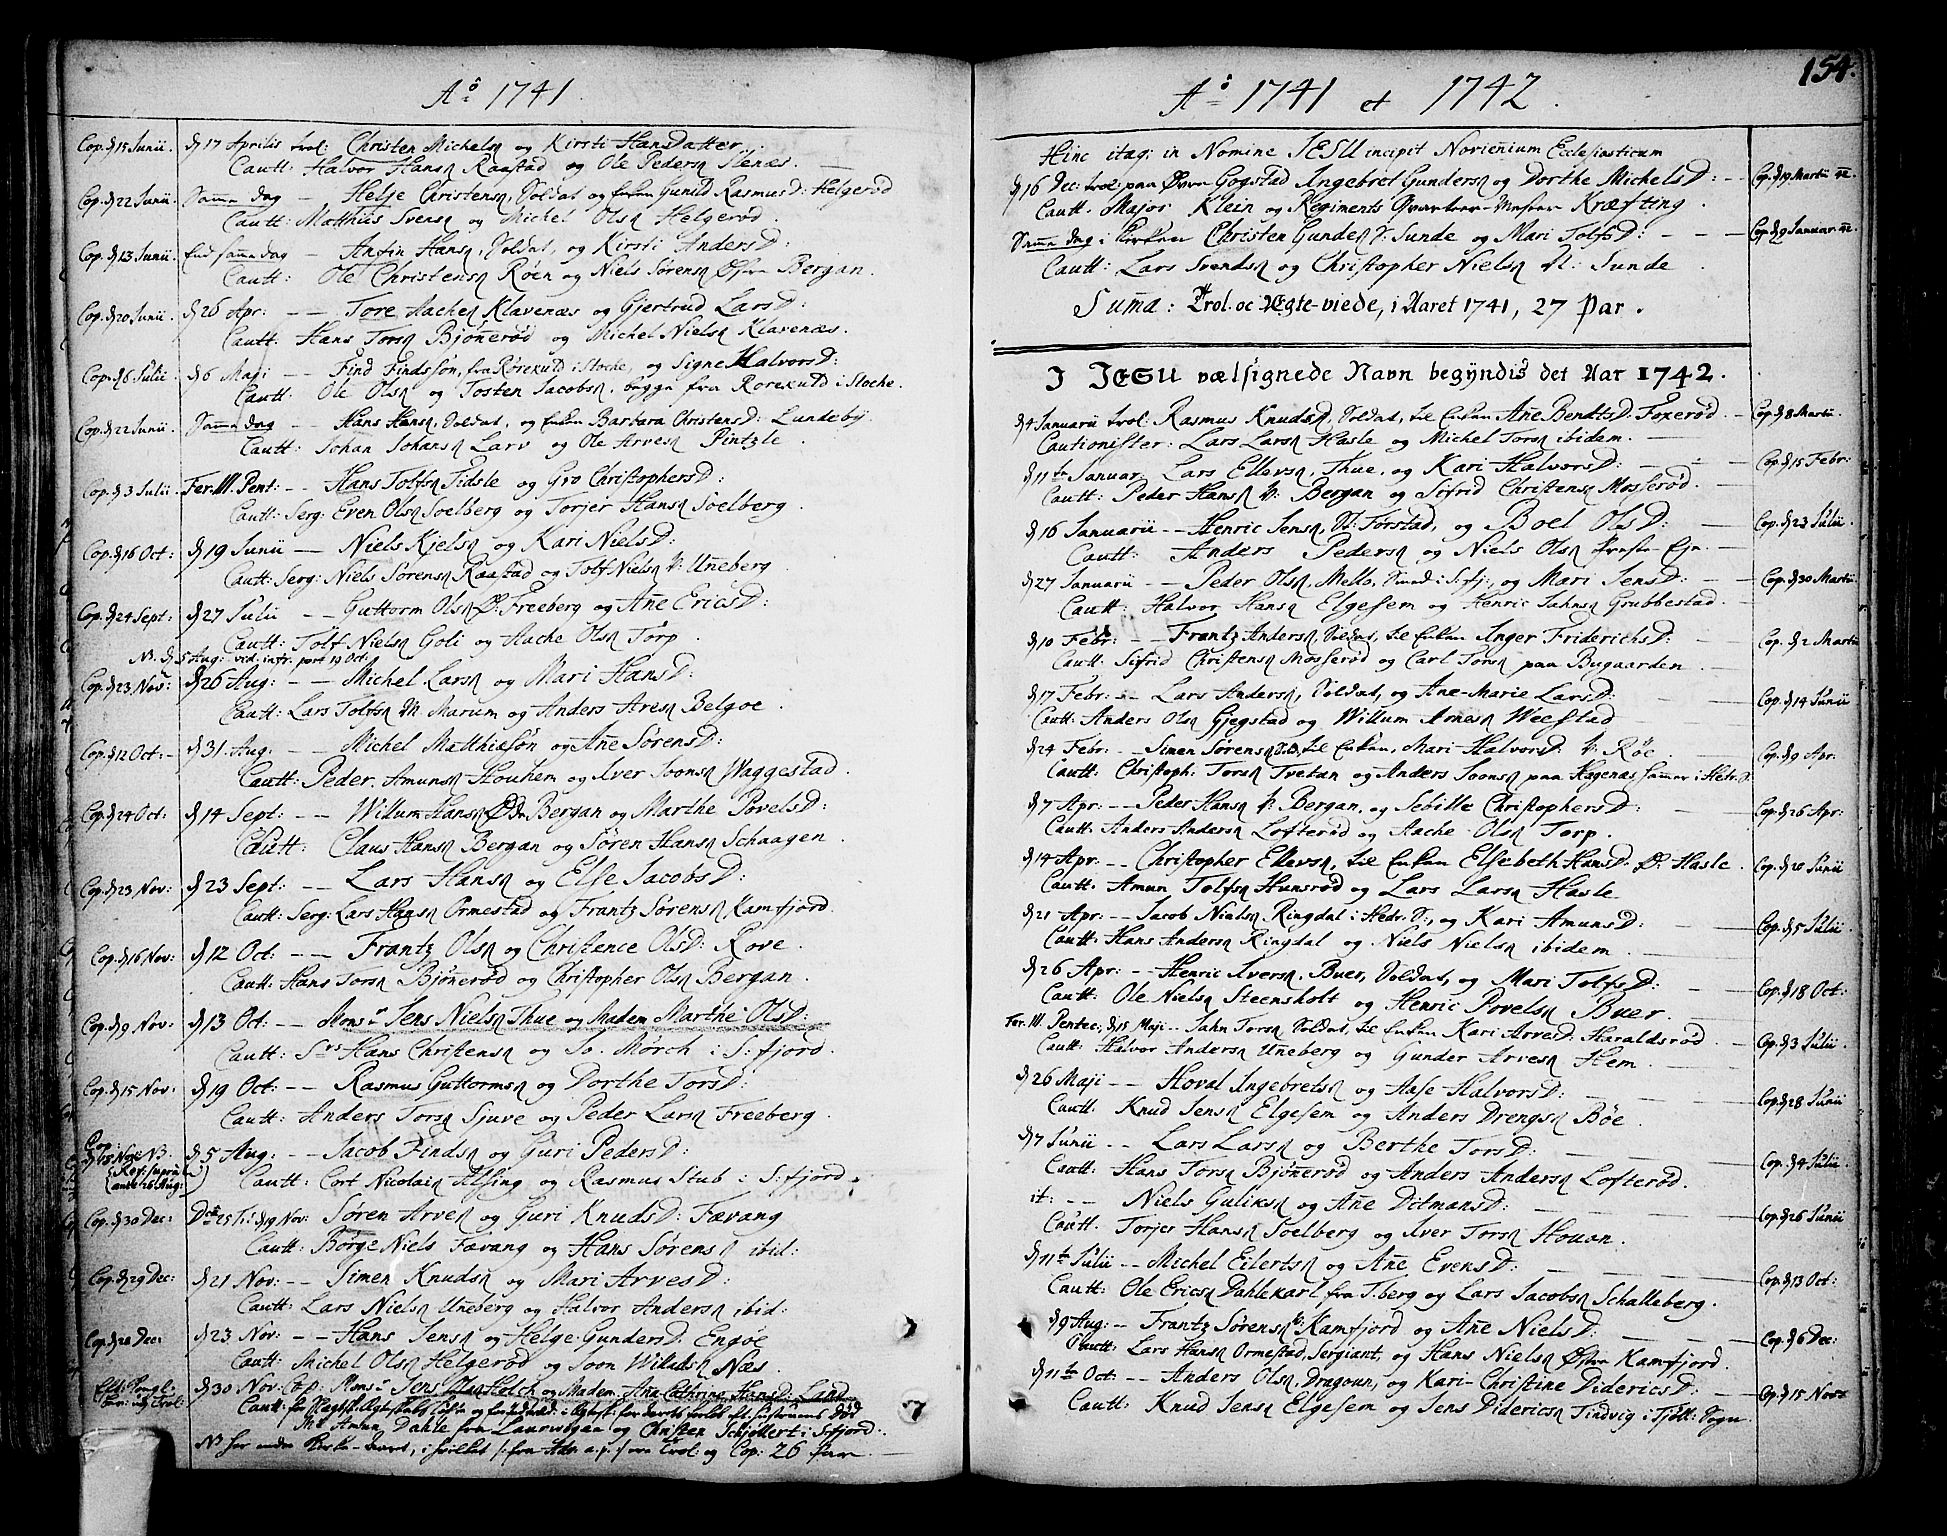 Aº 1741
Cop. d 15 Junii. d 17 Aprilis trol: Christen Michelsn og Kirsti HansDatter.
Cautt: Halvor Hansn Raastad og Ole Pedersn
Cop. d 22 Junii. Samme dag — Helje Christensn, Soldat og Enken Gunild RasmusD: Helgerød
Cautt: Matthias Svensn og Michel Olsn Helgerød.
Cop. d 13 Junii. End samme dag — Anfin Hansn, Soldat, og Kirsti AndersD:
Cautt: Ole Christensn Røen og Niels Sørensn Østre Bergan.
Cop. d 20 Junii. d 26 Apr: — Tore Aachen Klavenæs og Gjertrud LarsD:
Cautt: Hans Torsn Bjønerød og Michel Nielsn Klavenæs.
Cop. d 6 Julii. d 6 Maji — Find Findssøn, fra Rosekuld i Stoche, og Signe HalvorsD:
Cautt: Ole Olsn og Tosten Jacobsn, begge fra Rosekuld i Stoche.
Cop. d 22 Junii. Samme dag — Hans Hansn, Soldat, og Enken Barbara ChristensD: Lundeby
Cautt: Johan Johansn Larv og Ole Arvesn Pintzle
Cop. d 3 Julii. Fer. III. Pent: — Hans Tolfsn Tidsle og Gro ChristophersD:
Cautt: Serg: Even Olsn Soelberg og Torjer Hansn Soelberg.
Cop. d 16 Oct: d 19 Junii — Niels Kjelsn og Kari NielsD:
Cautt: Serg: Niels Sørensn Raastad og Tolf Nielsn V: Uneberg.
Cop. d 24 Sept: d 27 Julii — Guttorm Olsn Ø: Freeberg og Ane EricsD:
Cautt: Tolf Nielsn Goli og Aache Olsn Torp.
N. d 5 Aug: vid. infr. post 19 Oct:
Cop. d 23 Nov: d 26 Aug: — Michel Larsn og Mari HansD:
Cautt: Lars Tolfsn M: Marum og Anders Aresn Belgoe.
Cop. d 12 Oct: d 31 Aug: — Michel Matthiasøn og Ane SørensD:
Cautt: Peder Amunsn Houhem og Iver Joonsn Waggestad.
Cop. d 24 Oct: d 14 Sept: — Willum Hansn Ø: Bergan og Marthe PovelsD:
Cautt: Claus Hansn Bergan og Søren Hansn Schaagen
Cop. d 23 Nov: d 23 Sept: — Lars Hansn og Else JacobsD:
Cautt: Serg: Lars Hansn Ormestad og Frantz Sørensn Kamfjord.
Cop. d 16 Nov: d 12 Oct: — Frantz Olsn og Christence OlsD: Rove.
Cautt: Hans Torsn Bjønerød og Christopher Olsn Bergan.
Cop. d 9 Nov: d 13 Oct: — Mons.r Jens Nielsn Thue og Madem Marthe OlsD:
Cautt: Srs Hans Christensn og Jo. Mørch i S: fjord.
Cop. d 15 Nov: d 19 Oct: — Rasmus Guttormsn og Dorthe TorsD:
Cautt: Anders Torsn Sjuve og Peder Larsn Freeberg.
Cop: d 18 Nov: NB. d 5 Aug: — Jacob Findsn og Guri PedersD:
(Rev: supra ante 26 Aug:) Cautt: Cort Nicolain Alsing og Rasmus Stub i S: fjord.
Cop. d 30 Dec: Dca 25 Tr: d 19 Nov: Søren Arvesn og Guri KnudsD: Fævang
Cautt: Børge Niels Fævang og Hans Sørensn ibid:
Cop. d 29 Dec: d 21 Nov: — Simen Knudsn og Mari ArvesD:
Cautt: Lars Nielsn Uneberg og Halvor Andersn ibid:
Cop. d 20 Dec: d 23 Nov: — Hans Jensn og Helge GundersD: Engøe
Cautt: Michel Olsn Helgerød og Joon Willadsn Næs.
d 30 Nov. Cop: Mons.r Jens Holch og Madem. Ane Cathrine HansD: Land
Amun Dahle fra Laurwigen og Christen Schjøllert i S:fjord.
og Cop: 26 Par
154.
Aº 1741 et 1742.
Hinc itaq; in Nomine JESU incipit Noviennium Ecclesiasticum
d 16 Dec: trol: paa Øvre Gogstad Ingebret Gundersn og Dorthe MichelsD: Cop. d 19 Martii 42.
Cautt. Major Klein og Regiments Qvarteer-Mester Kræfting.
Samme dag i Kirken Christen Gundersn V: Sunde og Mari TolfsD: Cop. d 9 Januar 42.
Cautt: Lars Svendsn og Christopher Nielsn N: Sunde.
Suma: Trol. oc Ægte-viede, i Aaret 1741, 27 Par.
I JESU velsignede Navn begyndis det Aar 1742.
d 4 Januarii trol: Rasmus Knudsn, Soldat, til Enken Ane BendtsD: Foxerød. Cop. d 8 Martii.
Cautionister: Lars Larsn Hasle og Michel Torsn ibidem.
d 11te Januar Lars Ellevsn, Thue, og Kari HalvorsD: Cop. d 15 Febr:
Cautt: Peder Hansn V: Bergan og Sifrid Christensn Mosserød.
d 16 Januarii — Henric Jensn, N: Forstad, og Boel OlsD: Cop. d 23 Julii.
Cautt: Anders Pedersn og Niels Olsn Præste-Eje.
d 27 Januarii — Peder Olsn, Mello, Smed i S: fj:, og Mari JensD: Cop. d 30 Martii.
Cautt: Halvor Hansn Elgesem og Henric Jahnsn Grubbestad.
d 10 Febr: — Frantz Andersn, Soldat, til Enken Inger FriderichsD: Cop. d 2 Martii
Cautt: Sifrid Christensn Mosserød og Carl Torsn paa Bugaarden
d 17 Febr: — Lars Andersn, Soldat, og Ane-Marie LarsD: Cop. d 14 Junii
Cautt: Anders Olsn Gjegstad og Willum Arnesn Weestad
d 24 Febr: — Simen Sørensn til Enken, Mari HalvorsD: V: Røe. Cop. d 9 Apr:
Cautt: Christoph: Torsn Tvetan og Anders Joonsn paa Hagenæs i Hedr:
d 7 Apr: — Peder Hansn V: Bergan, og Sebille ChristophersD: Cop. d 26 Apr:
Cautt: Anders Andersn Lofterød og Aache Olsn Torp.
d 14 Apr. — Christopher Ellevsn, til Enken Elsebeth HansD: Ø: Hasle. Cop. d 20 Junii
Cautt. Amun Tolfsn Hunsrød og Lars Larsn Hasle
d 21 Apr: — Jacob Nielsn Ringdal i Hedr: S:, og Kari AmunsD: Cop. d 5 Julii.
Cautt: Hans Andersn Ringdal og Niels Nielsn ibidem.
d 26 Apr: — Henric Iversn, Buer, Soldat, og Mari TolfsD: Cop. d 18 Oct:
Cautt: Ole Nielsn Steensholt og Henric Povelsn Buer.
Fer. III. Pentec, d 15 Maji — Jahn Torsn Soldat, til Enken Kari ArvesD: Haraldsrød. Cop. d 3 Julii.
Cautt: Halvor Andersn Uneberg og Gunder Arvesn Hem.
d 26 Maji — Hoval Ingebretsn og Aase HalvorsD: Cop. d 28 Junii
Cautt. Knud Jensn Elgesem og Anders Drengsn Bøe.
d 7 Junii — Lars Larsn og Berthe TorsD: Cop. d 4 Julii.
Cautt: Hans Torsn Bjønerød og Anders Andersn Lofterød.
it: — Niels Guliksn og Ane DitmansD: Cop. d 26 Junii
Cautt. Torjer Hansn Soelberg og Iver Torsn Houan.
d 11te Julii — Michel Eilertsn og Ane EvensD: Cop. d 13 Oct:
Cautt: Ole Ericsn Dahlekarl fra T:berg og Lars Jacobsn Schalleberg.
d 9 Aug: — Frantz Sørensn V: Kamfjord og Ane NielsD: Cop. d 6 Dec:
Cautt: Lars Hansn Ormestad, Sergiant, og Hans Nielsn Østre Kamfjord.
d 11te Oct: — Anders Olsn, Dragoun, og Kari-Christine DidericsD: Cop. d 15 Nov:
Cautt: Knud Jensn Elgesem og Jens Didericsn Tindvig i Tjøtt: Sogn.